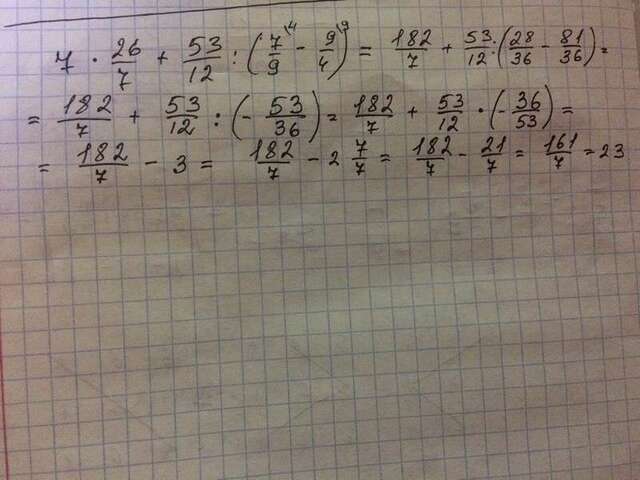 7 · 26/7 + 53/12 : (7/9 \4 - 9/4 \9) = 182/7 + 53/12 : (28/36 - 81/36) =
= 182/7 + 53/12 : (- 53/36) = 182/7 + 53/12 · (- 36/53) =
= 182/7 - 3 = 182/7 - 2 7/7 = 182/7 - 21/7 = 161/7 = 23